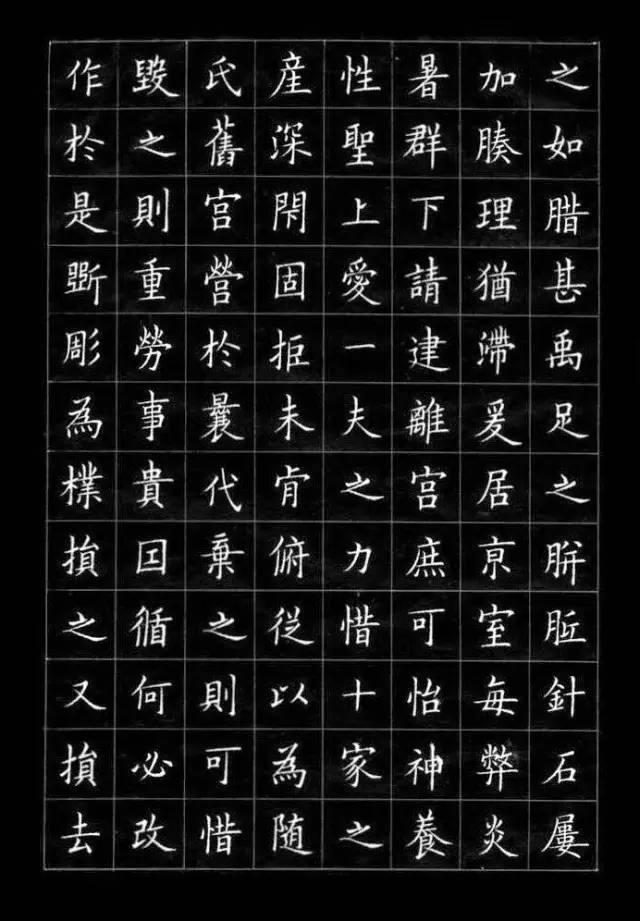 之如腊甚禹足之胼胝針石屢
加腠理猶滯爰居亰室每弊炎
暑群下請建離宫庶可怡神養
性聖上愛一夫之力惜十家之
産深閇固拒未肯俯從以為随
氏舊宫營於曩代棄之則可惜
毀之則重勞事貴囙循何必改
作於是斲彫為樸損之又損去